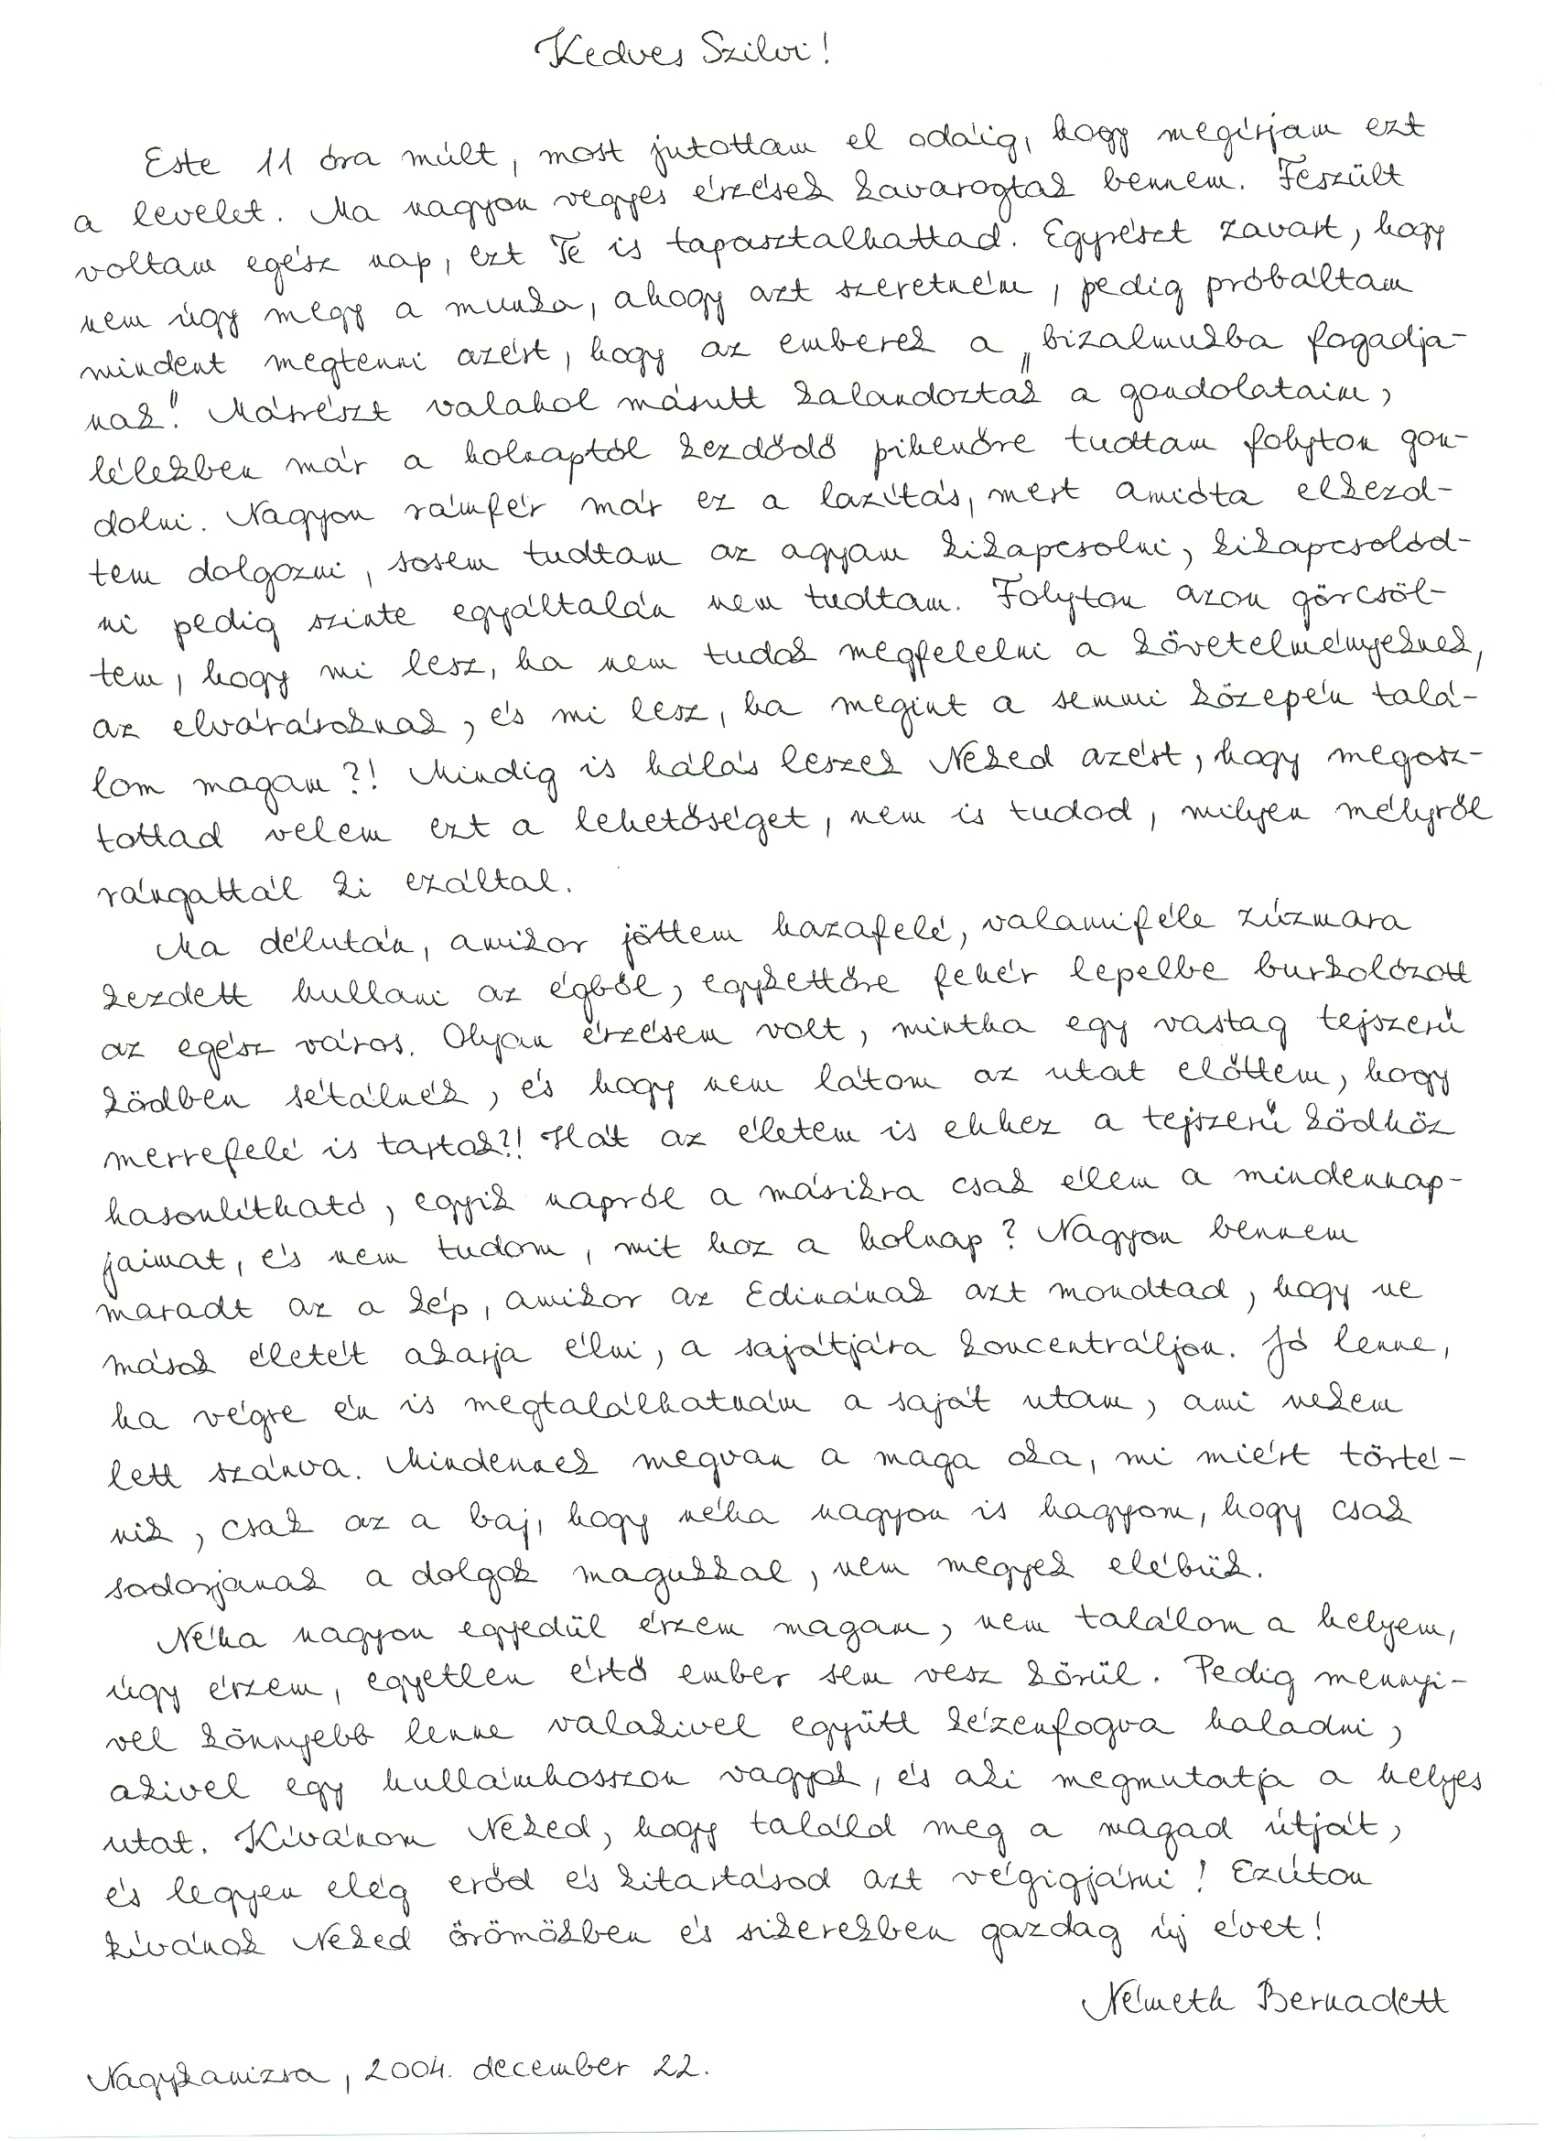 Kedves Szilvi!
Este 11 óra múlt, most jutottam el odáig, hogy megírjam ezt
a levelet. Ma nagyon vegyes érzések kavarogtak bennem. Feszült
voltam egész nap, ezt Te is tapasztalhattad. Egyrészt zavart, hogy
nem úgy megy a munka, ahogy azt szeretném, pedig próbáltam
mindent megtenni azért, hogy az emberek a „bizalmukba fogadja-
nak". Másrészt valahol másutt kalandoztak a gondolataim,
lélekben már a holnaptól kezdődő pihenőre tudtam folyton gon-
dolni. Nagyon rámfér már ez a lazítás, mert amióta elkezd-
tem dolgozni, sosem tudtam az agyam kikapcsolni, kikapcsolód-
ni pedig szinte egyáltalán nem tudtam. Folyton azon görcsöl-
tem, hogy mi lesz, ha nem tudok megfelelni a követelményeknek,
az elvárásoknak, és mi lesz, ha megint a semmi közepén talá-
lom magam?! Mindig is hálás leszek Neked azért, hogy megosz-
tottad velem ezt a lehetőséget, nem is tudod, milyen mélyről
rángattál ki ezáltal.
Ma délután, amikor jöttem hazafelé, valamiféle zúzmara
kezdett hullani az égből, egykettőre fehér lepelbe burkolózott
az egész város. Olyan érzésem volt, mintha egy vastag tejszerű
ködben sétálnék, és hogy nem látom az utat előttem, hogy
merrefelé is tartok?! Hát az életem is ehhez a tejszerű ködhöz
hasonlítható, egyik napról a másikra csak élem a mindennap-
jaimat, és nem tudom, mit hoz a holnap? Nagyon bennem
maradt az a kép, amikor az Edinának azt mondtad, hogy ne
mások életét akarja élni, a sajátjára koncentráljon. Jó lenne,
ha végre én is megtalálhatnám a saját utam, ami nekem
lett szánva. Mindennek megvan a maga oka, mi miért törté-
nik, csak az a baj, hogy néha nagyon is hagyom, hogy csak
sodorjanak a dolgok magukkal, nem megyek elébük.
Néha nagyon egyedül érzem magam, nem találom a helyem,
úgy érzem, egyetlen értő ember sem vesz körül. Pedig mennyi-
vel könnyebb lenne valakivel együtt kézenfogva haladni,
akivel egy hullámhosszon vagyok, és aki megmutatja a helyes
utat. Kívánom Neked, hogy találd meg a magad útját,
és legyen elég erőd és kitartásod azt végigjárni! Ezúton
kívánok Neked örömökben és sikerekben gazdag új évet!
Németh Bernadett
Nagykanizsa, 2004. december 22.